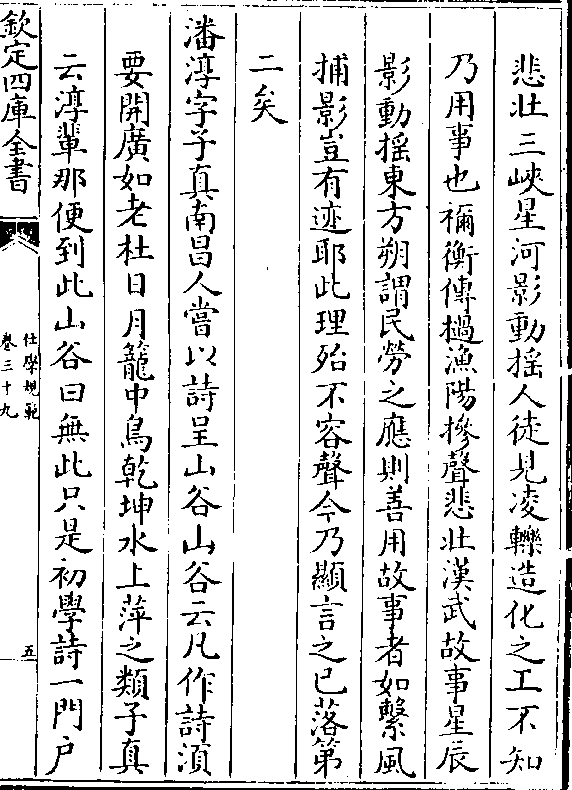 悲壯三峽星河影動搖人徒見凌轢造化之工不知
乃用事也禰衡傳撾漁陽摻聲悲壯漢武故事星辰
影動搖東方朔謂民勞之應則善用故事者如繫風
捕影豈有迹耶此理殆不容聲今乃顯言之已落第
二矣
潘淳字子真南昌人嘗以詩呈山谷山谷云凡作詩須
要開廣如老杜日月籠中鳥乾坤水上萍之類子真
云淳輩那便到此山谷曰無此只是初學詩一門户
欽定四庫全書
仕學規範
卷三十九
五